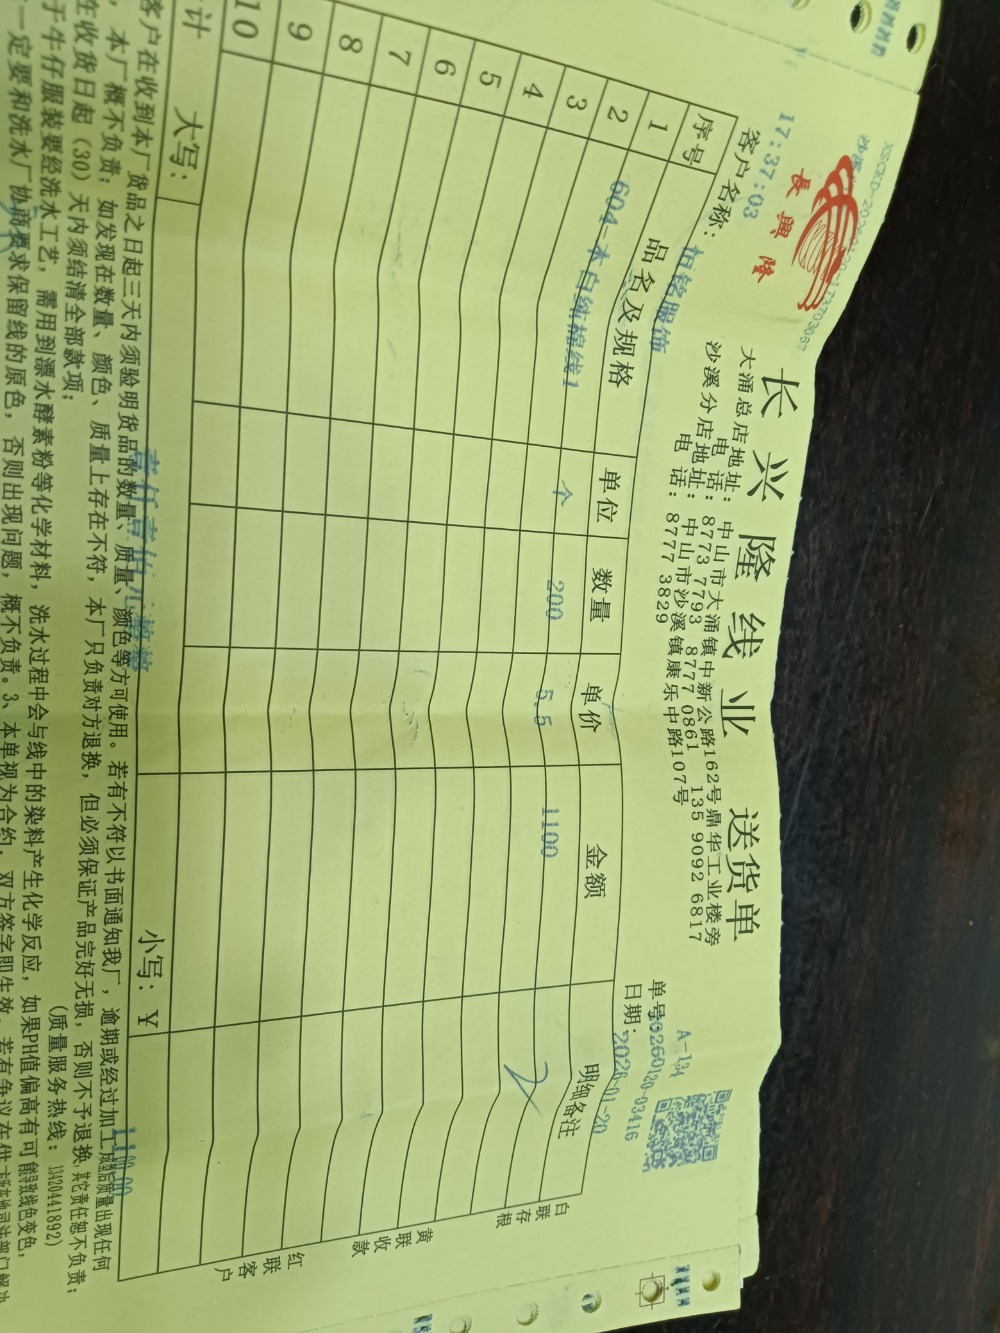 長興隆
长兴隆线业 送货单
大涌总店地址：中山市大涌镇中新公路162号鼎华工业楼旁
电话：8773 7793 8777 0861 135 9092 6817
沙溪分店地址：中山市沙溪镇康乐中路107号
电话：8777 3829
A-134
17:37:03
单号：20260120-03416
客户名称：恒铭服饰
日期：2026-01-20
序号 品名及规格 单位 数量 单价 金额 明细备注
1 604-本白纯棉线1 个 200 5.5 1100
2
3
4
5
6
7
8
9
10
计 大写： 壹仟壹佰元整 小写：￥ 1100.00
白联存根
黄联收款
红联客户
客户在收到本厂货品之日起三天内须验明货品的数量、质量、颜色等方可使用。若有不符以书面通知我厂，逾期或经过加工成型后质量出现任何
，本厂概不负责；如发现在数量、颜色、质量上存在不符，本厂只负责对方退换，但必须保证产品完好无损，否则不予退换，其它责任恕不负责；
在收货日起（30）天内须结清全部款项；
（质量服务热线：13420441892）
于牛仔服装要经洗水工艺，需用到漂水酵素粉等化学材料，洗水过程中会与线中的染料产生化学反应，如果PH值偏高有可能导致线色变色，
一定要和洗水厂协商要求保留线的原色，否则出现问题，概不负责。3、本单视为合约，双方签字即生效，若有争议在供方所在地司法部门解决